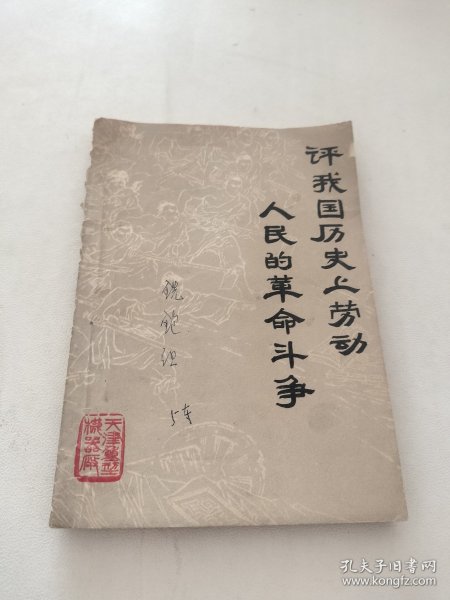 评我国历史上劳动
人民的革命斗争
铣铇组
5车
天津重型
机器厂
孔夫子旧书网
www.kongfz.com